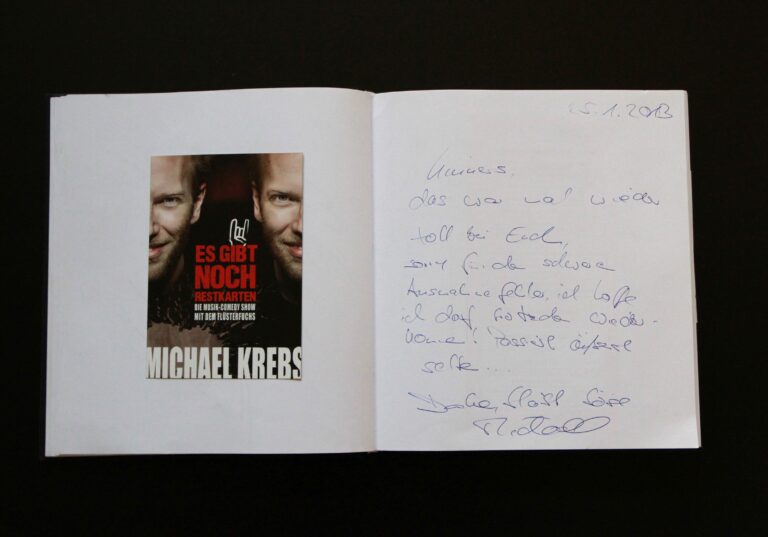 ES GIBT
NOCH
RESTKARTEN
DIE MUSIK-COMEDY SHOW
MIT DEM FLÜSTERFUCHS
MICHAEL KREBS
5.1.2013
das war mal wieder
toll bei Euch,
sorry für den schweren
Ausnahmefehler, ich hoffe
ich darf trotzdem wieder-
kommen! Passiert äußerst
selten...
Danke,